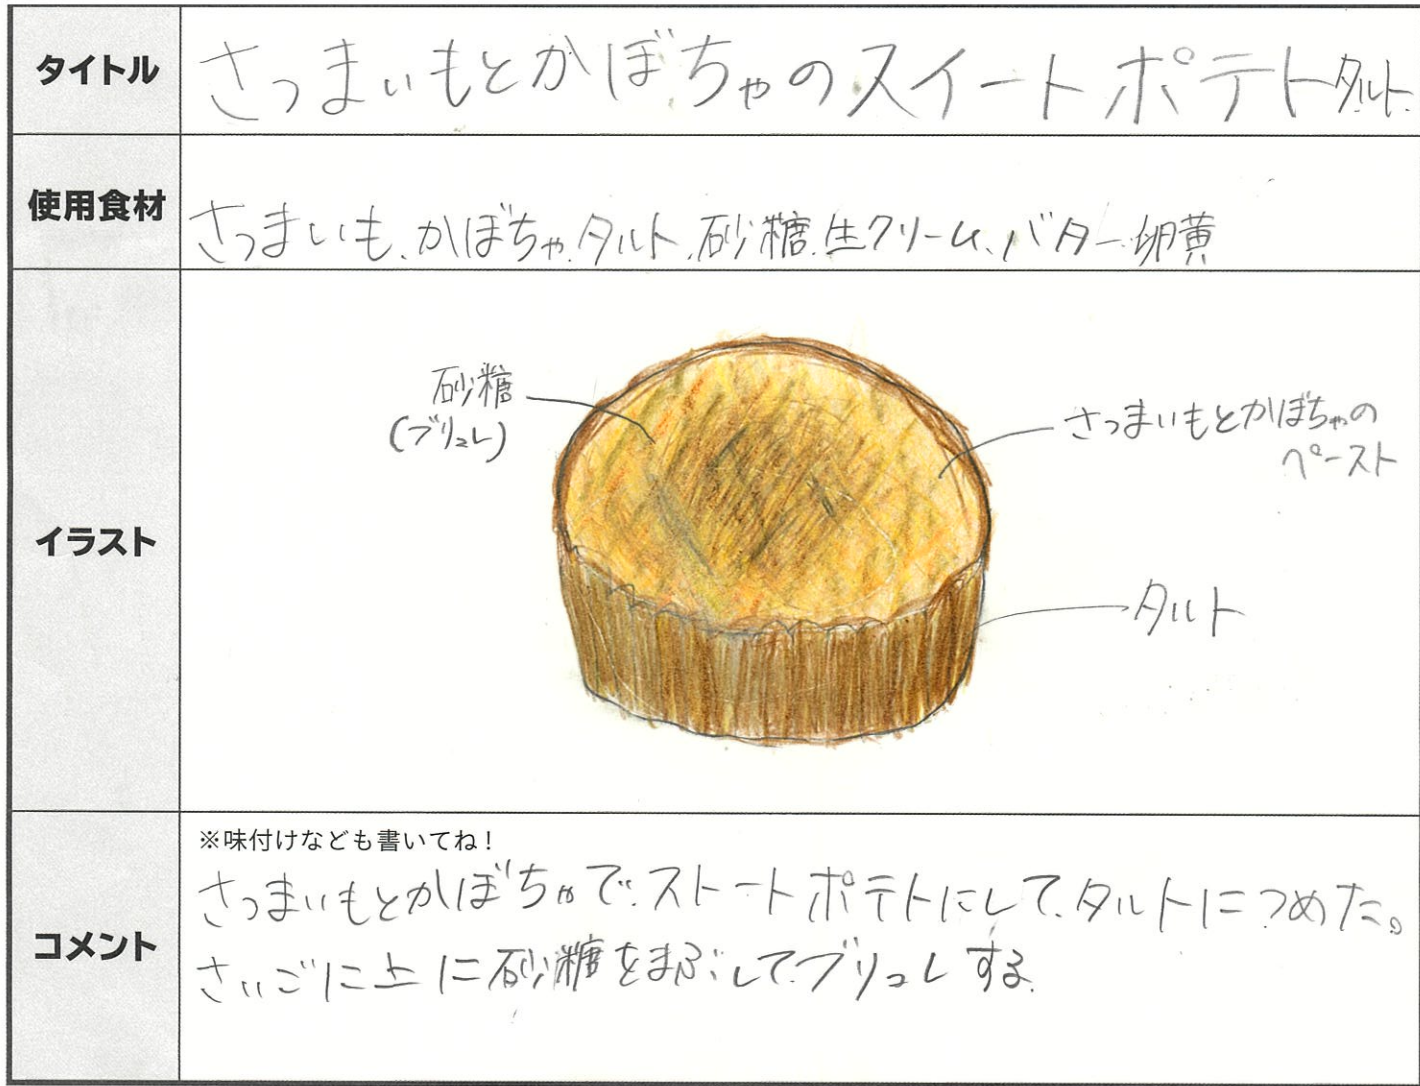 タイトル
さつまいもとかぼちゃのスイートポテトタルト
使用食材
さつまいも、かぼちゃ、タルト、砂糖、生クリーム、バター、卵黄
イラスト
砂糖
(ブリュレ)
さつまいもとかぼちゃの
ペースト
タルト
コメント
※味付けなども書いてね!
さつまいもとかぼちゃで、ストートポテトにして、タルトにつめた。
さいごに上に砂糖をまぶしてブリュレする。